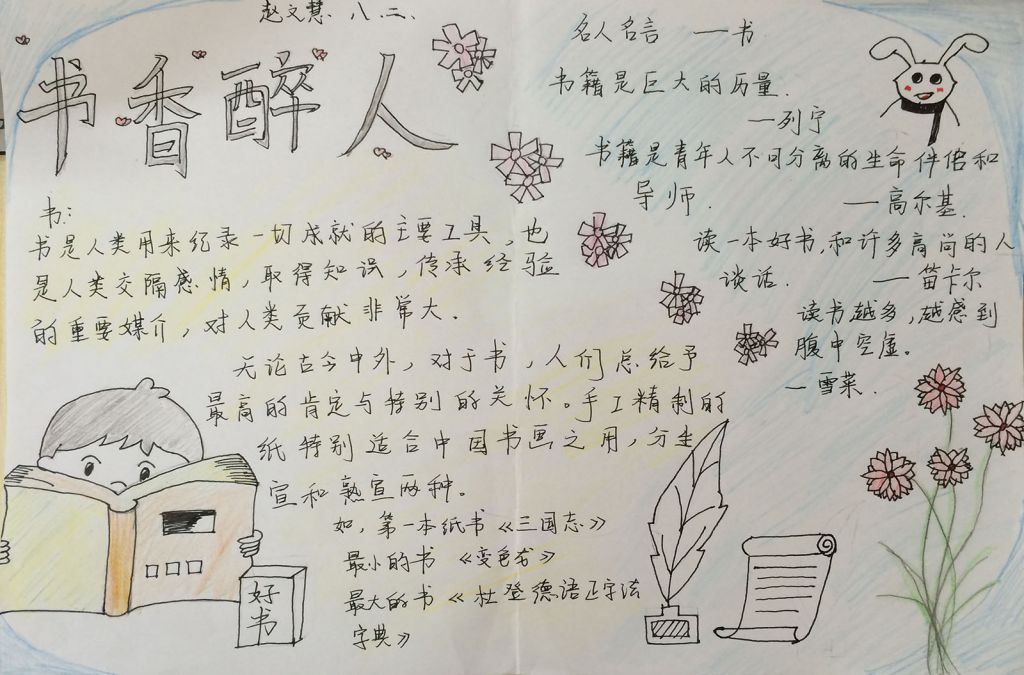 赵文慧.八.三.
书香醉人
书:
书是人类用来纪录一切成就的主要工具,也
是人类交隔感情,取得知识,传承经验
的重要媒介,对人类贡献非常大.
无论古今中外,对于书,人们总给予
最高的肯定与特别的关怀。手工精制的
纸特别适合中国书画之用,分生
宣和熟宣两种。
如,第一本纸书《三国志》
最小的书《变色龙》
最大的书《杜登德语正字法
字典》
好
书
名人名言 —书
书籍是巨大的历量.
—列宁
书籍是青年人不可分离的生命伴侣和
导师.
—高尔基.
读一本好书,和许多高尚的人
谈话.
—笛卡尔
读书越多,越感到
腹中空虚。
—雪莱.